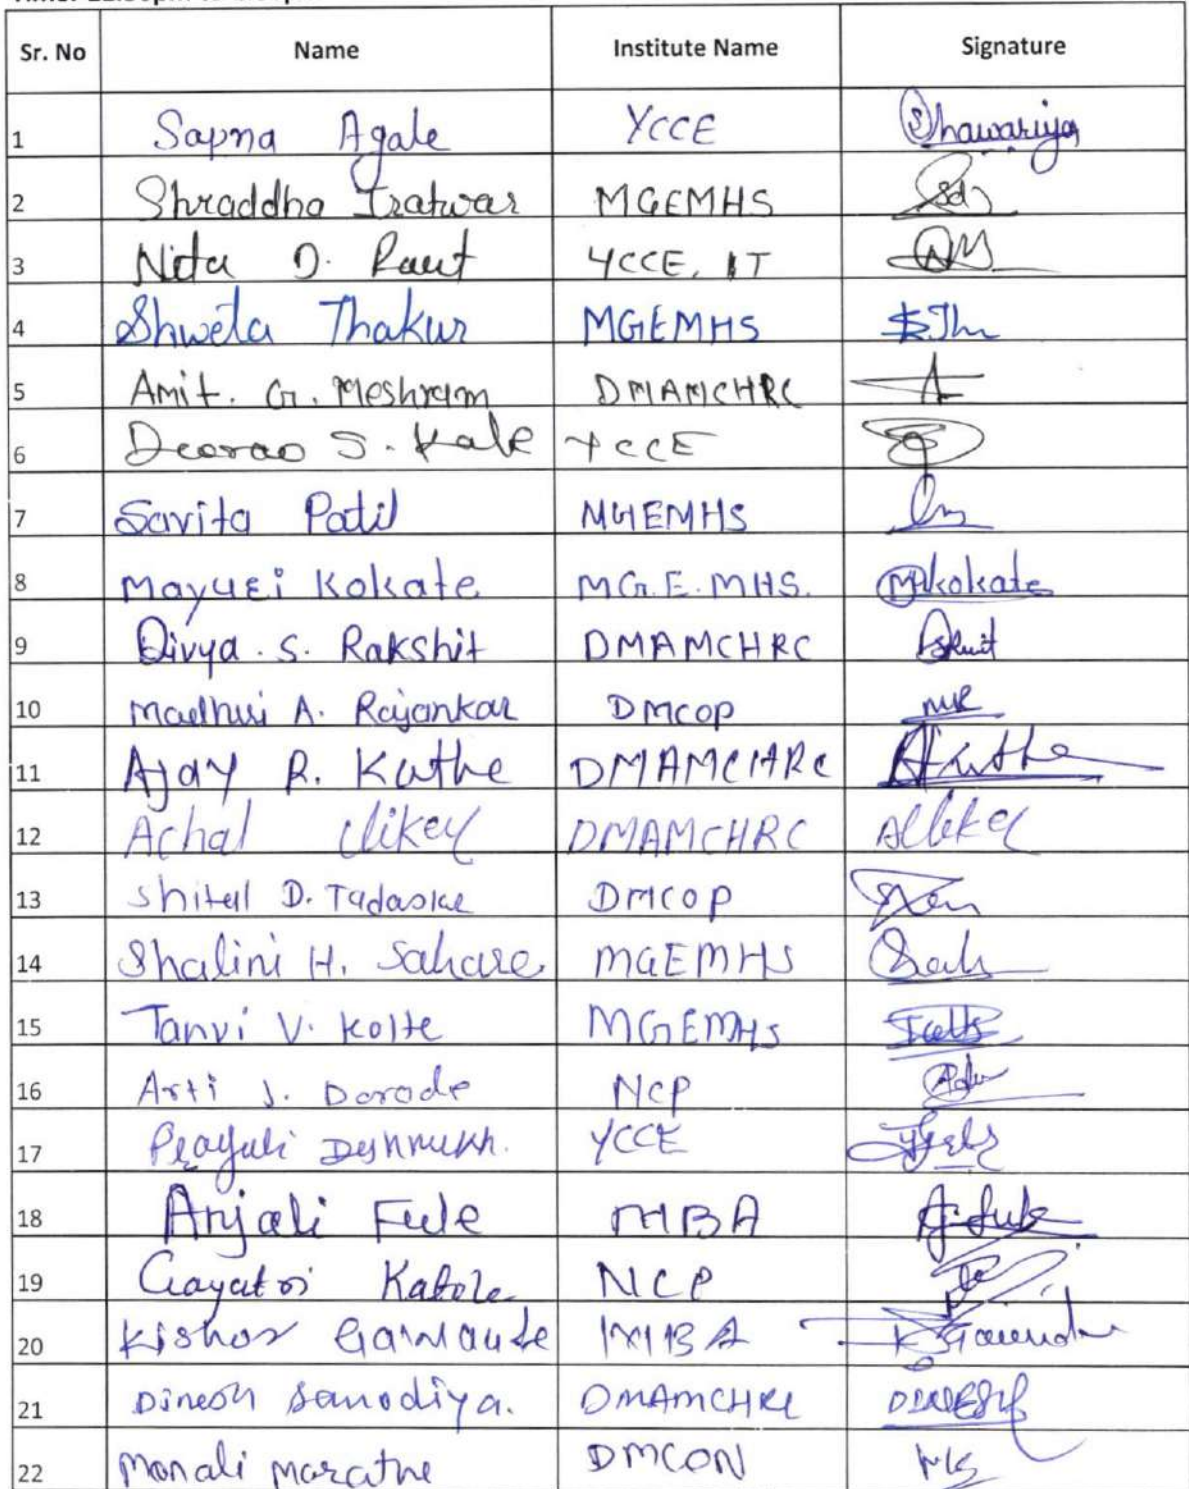 Sr. No Name Institute Name Signature
1 Sapna Agale YCCE Shawariya
2 Shraddha Iratwar MGEMHS Sd
3 Nita D. Raut YCCE, IT
4 Shweta Thakur MGEMHS S.Th
5 Amit. G. Meshram DMAMCHRC A
6 Deorao S. Kale YCCE
7 Savita Patil MGEMHS
8 Mayuri Kokate MG.E.MHS. Mkokate
9 Divya . S. Rakshit DMAMCHRC
10 Madhuri A. Rajankar DMCOP MR
11 Ajay R. Kathe DMAMCHRC AKathe
12 Achal Uikey DMAMCHRC
13 Shital D. Tadaske DMCOP
14 Shalini H. Sahare MGEMHS
15 Tanvi V. Kolte MGEMHS
16 Arti J. Darode NCP
17 Prayali Deshmukh. YCCE
18 Anjali Fule MBA A.fule
19 Gayatri Katole NCP
20 Kishor MBA
21 Dinesh Sanodiya. DMAMCHRC DINESH
22 Monali Marathe DMCON